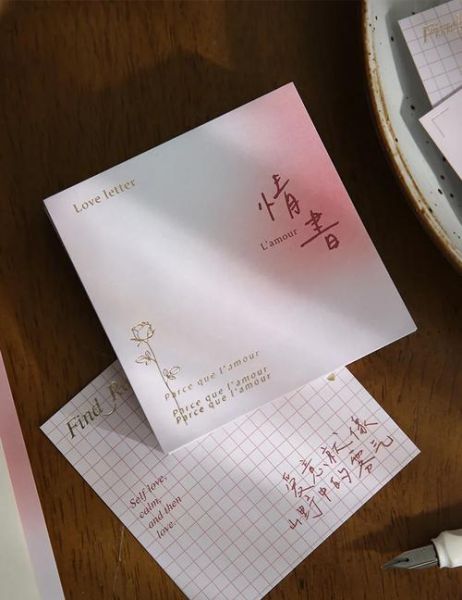 Love letter
情書
L'amour
Parce que l'amour
Parce que l'amour
Parce que l'amour
Find
Self love,
calm,
and then
love.
爱意就像
山野中的雾气